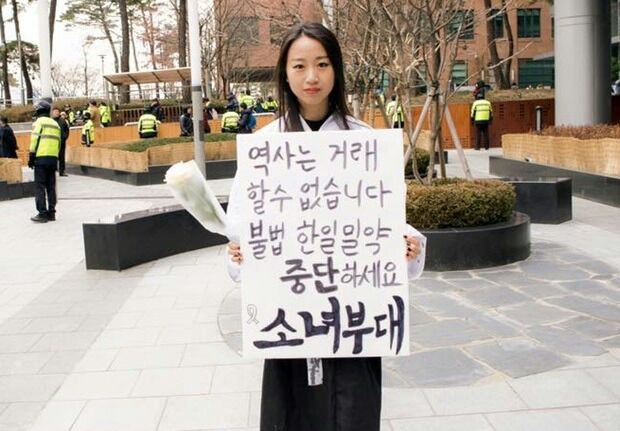 역사는 거래
할수 없습니다
불법 한일밀약
중단하세요
소녀부대